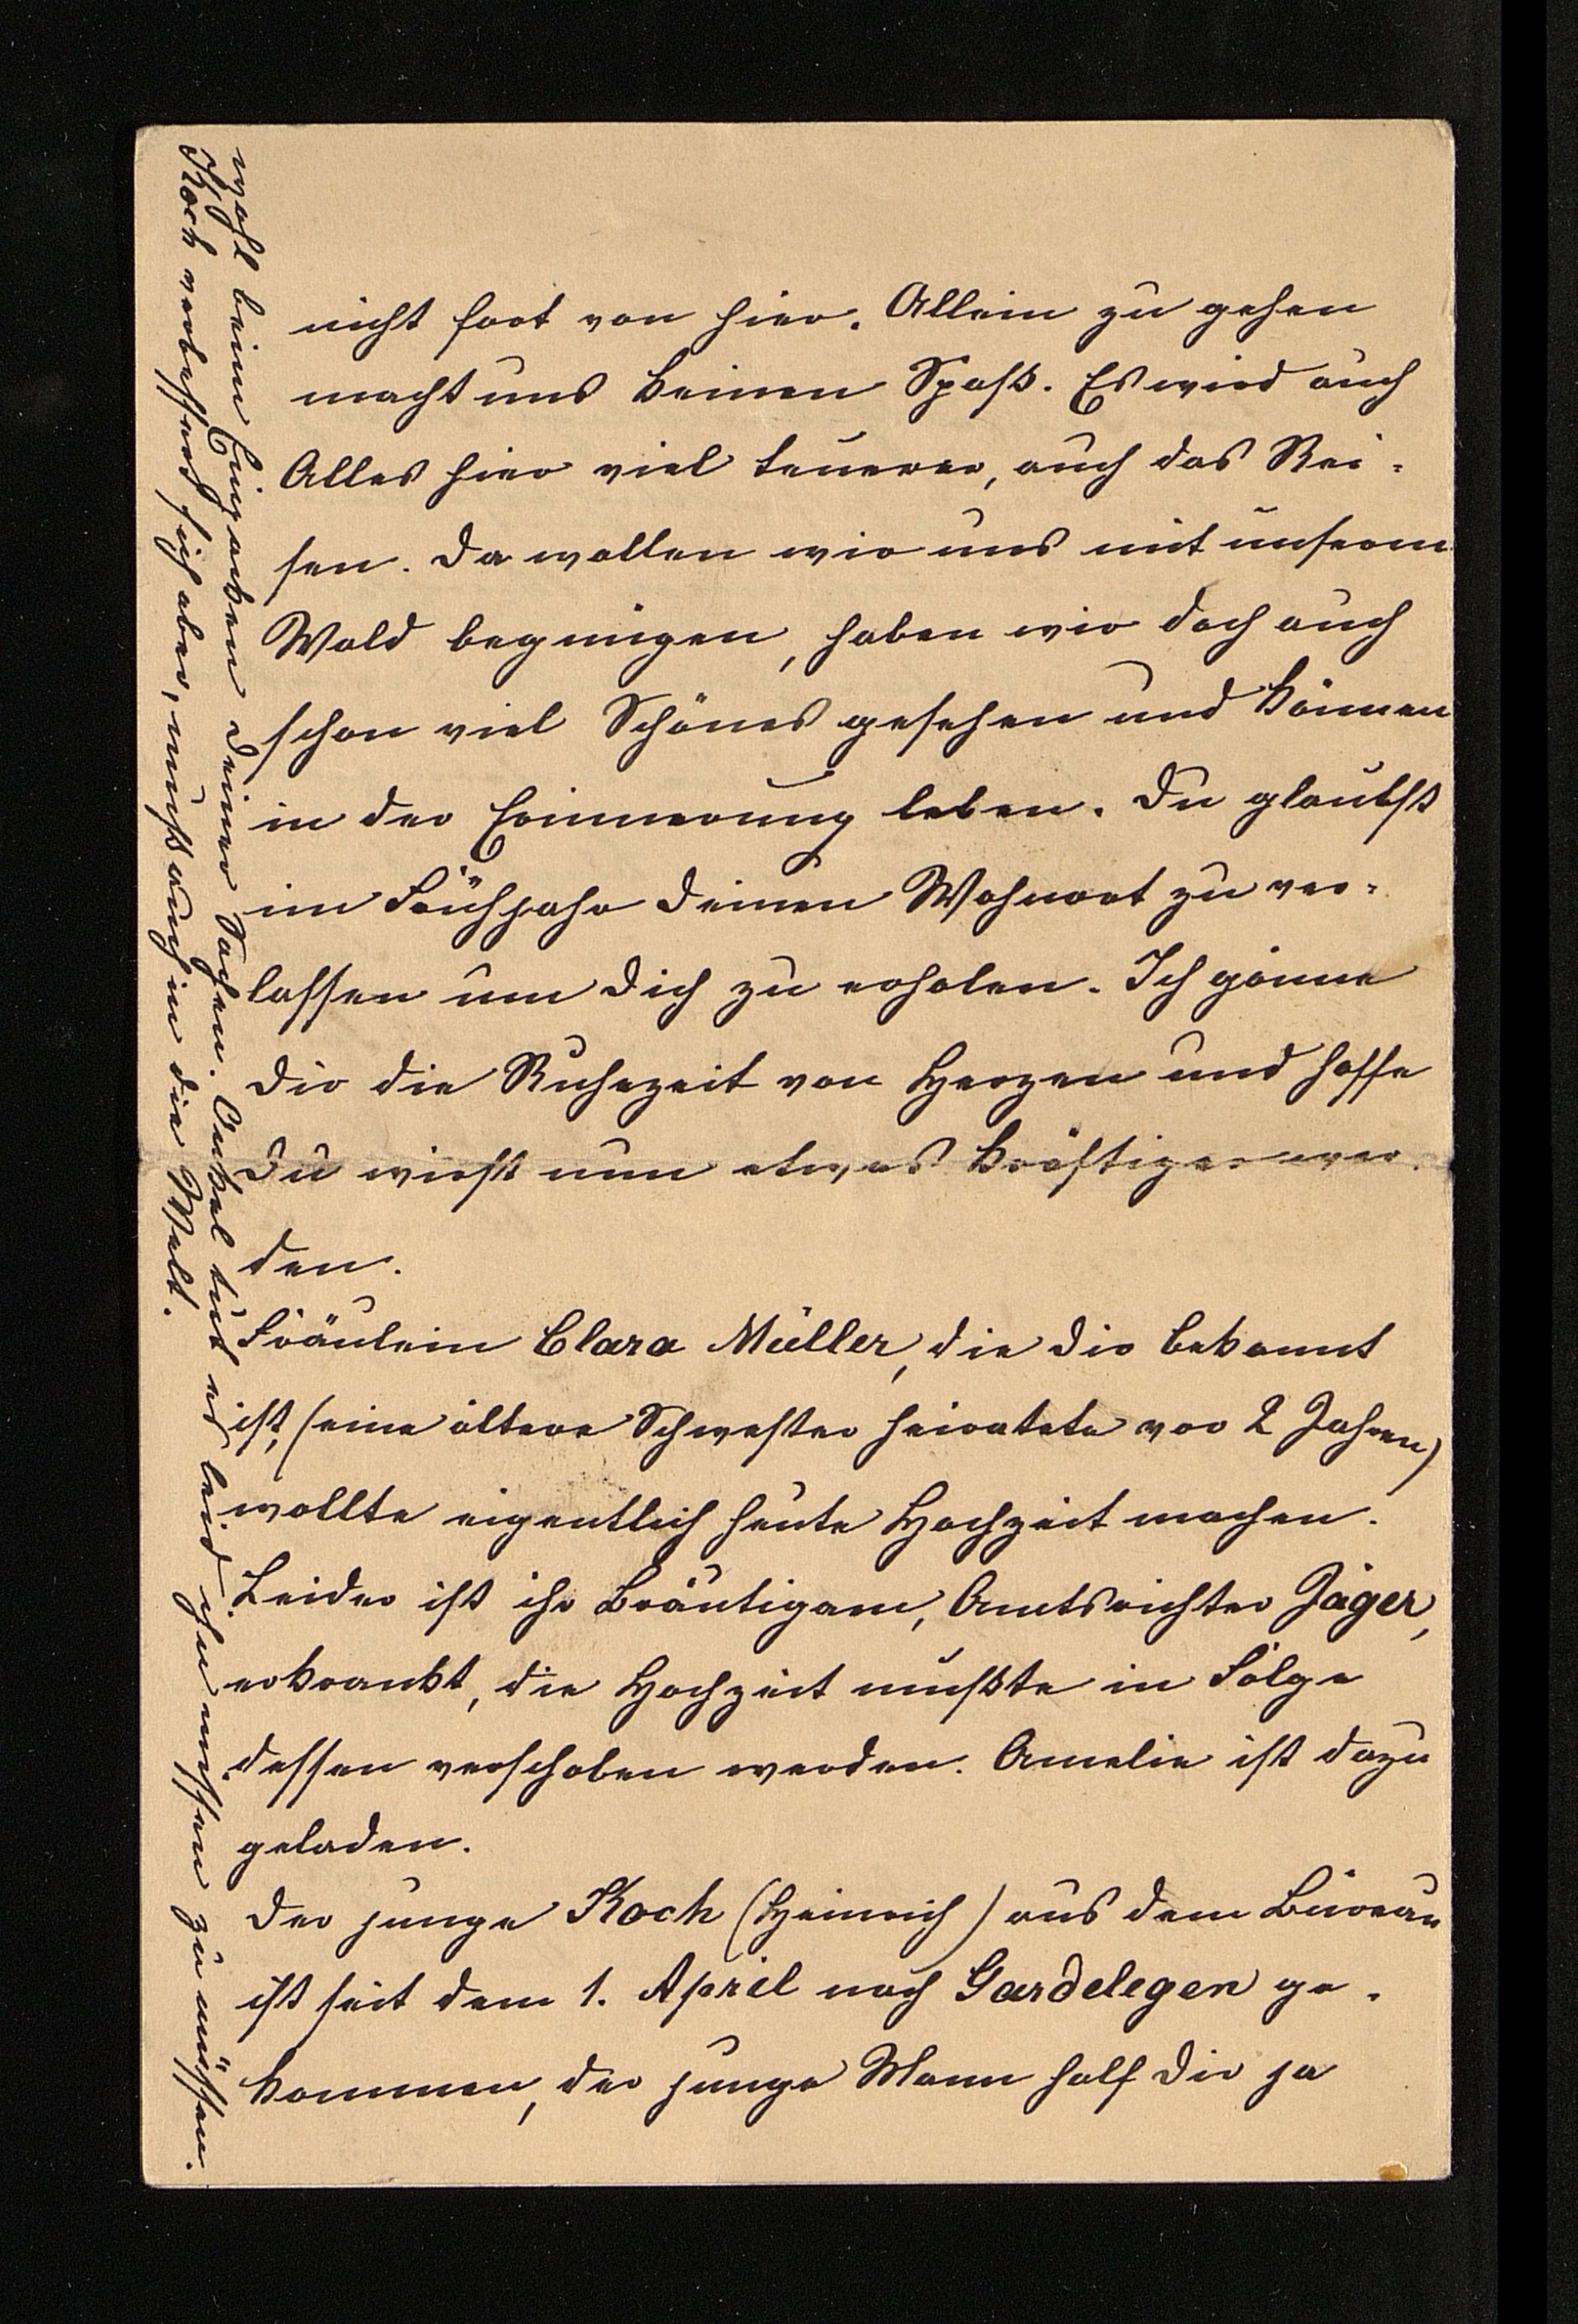 nicht fort von hier. Allein zu gehen
macht uns keinen Spaß. Es wird auch
Alles hier viel teuerer, auch das Rei-
sen. Da wollen wir uns mit unserm
Wald begnügen, haben wir doch auch
schon viel Schönes gesehen und können
in der Erinnerung leben. Du glaubst
im Frühjahr Deinen Wohnort zu ver-
lassen um Dich zu erholen. Ich gönne
Dir die Ruhezeit von Herzen und hoffe
Du wirst nun etwas kräftiger wer-
den.
Fräulein Clara Müller, die Dir bekannt
ist, (eine ältere Schwester heiratete vor 2 Jahren)
wollte eigentlich heute Hochzeit machen.
Leider ist ihr Bräutigam, Amtsrichter Jäger,
erkrankt, die Hochzeit mußte in Folge
dessen verschoben werden. Amelie ist dazu
geladen.
Der junge Koch (Heinrich) aus dem Büreau
ist seit dem 1. April nach Gardelegen ge-
kommen, der junge Mann half Dir ja
wohl beim Einpacken Deiner Sachen. Onkel tut es leid ihn missen zu müssen.
Koch verbessert sich aber, muß auch in die Welt.